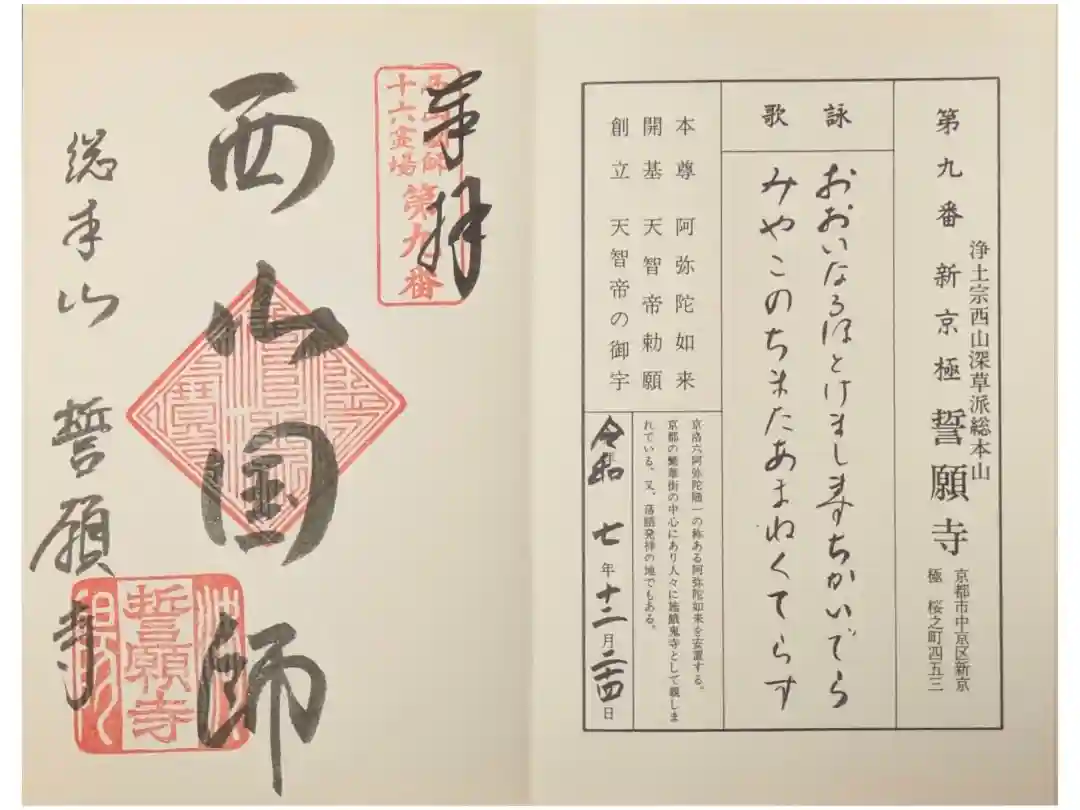 浄土宗西山深草派総本山
第九番 新京極 誓願寺
京都市中京区新京
極 桜之町四五三
詠歌
おおいなるほとけましますちかいでら
みやこのちまたあまねくてらす
本尊 阿弥陀如来
開基 天智帝勅願
創立 天智帝の御宇
京洛六阿弥陀随一の称ある阿弥陀如来を安置する。
京都の繁華街の中心にあり人々に施餓鬼寺として親しま
れている。又、落語発祥の地でもある。
令和 七年十二月二十四日
奉拝
西山国師
十六霊場
第九番
西山国師
総本山 誓願寺
誓願寺